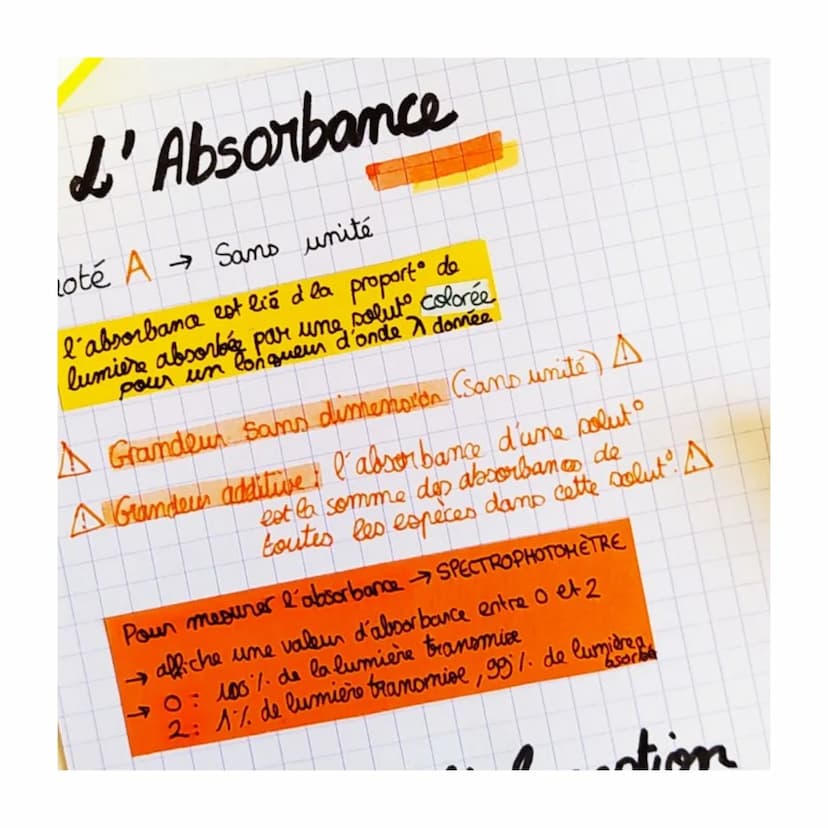 L'Absorbance
noté A → Sans unité
l'absorbance est lié à la proport° de
lumière absorbée par une solut° colorée
pour un longueur d'onde λ donnée
⚠ Grandeur sans dimension (sans unité) ⚠
⚠ Grandeur additive : l'absorbance d'une solut°
est la somme des absorbances de
toutes les espèces dans cette solut°. ⚠
Pour mesurer l'absorbance → SPECTROPHOTOMÈTRE
→ affiche une valeur d'absorbance entre 0 et 2
→ 0 : 100% de la lumière transmise
2 : 1% de lumière transmise, 99% de lumière absorbé